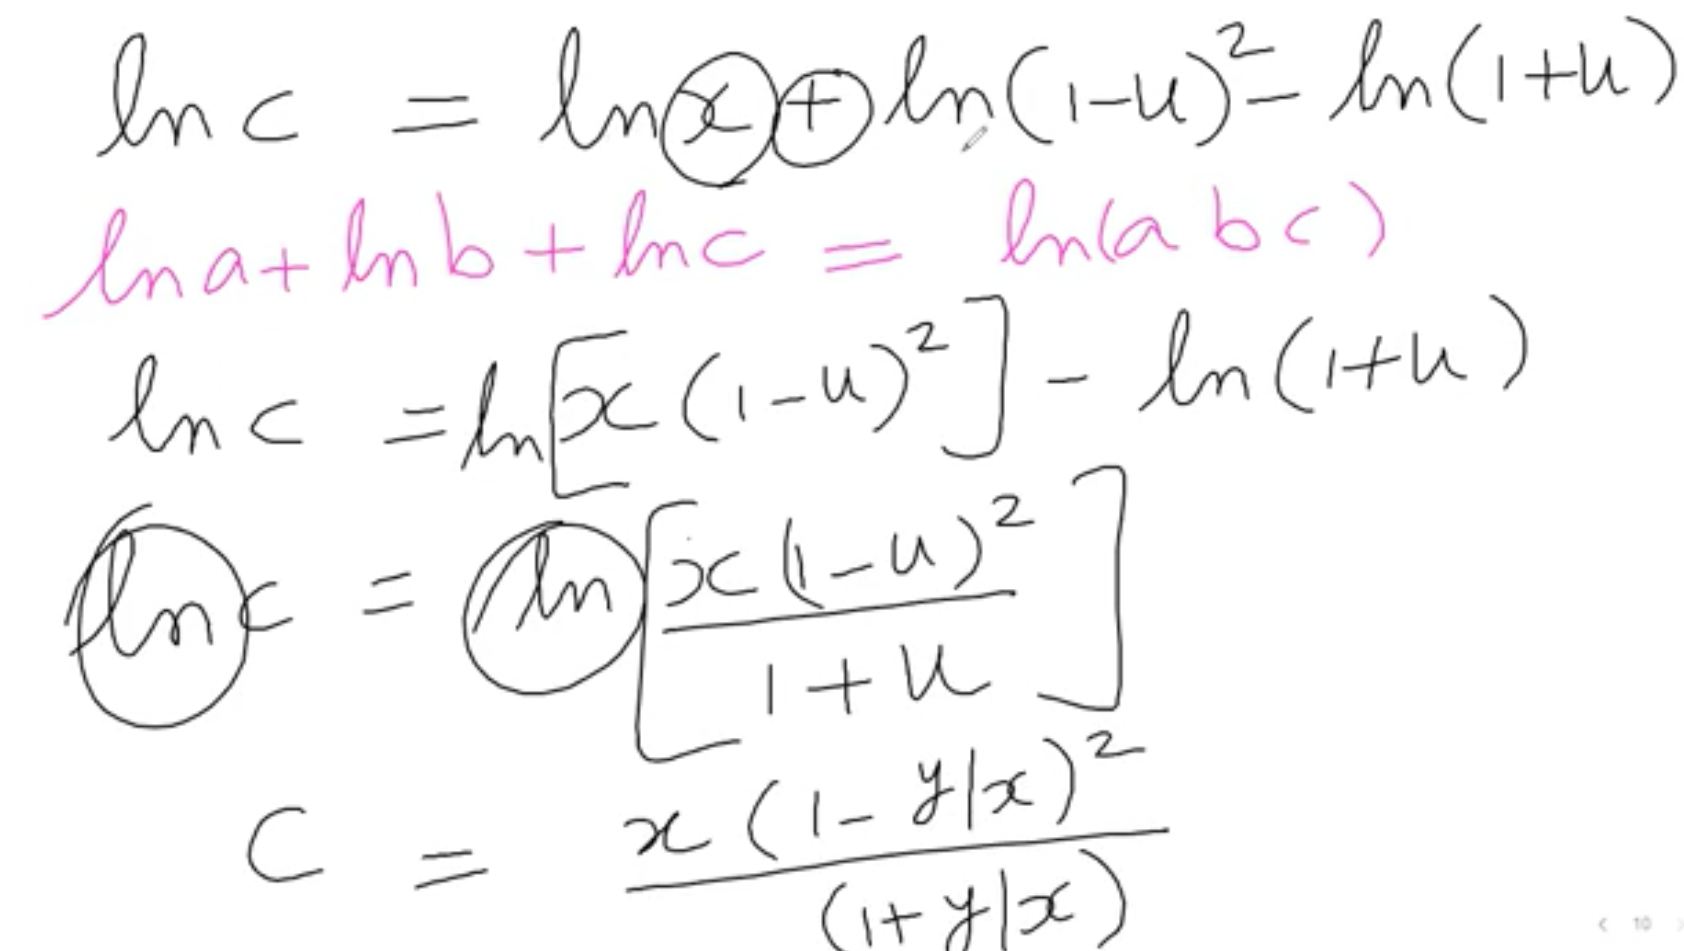 ln c = ln x + ln(1-u)² - ln(1+u)
ln a + ln b + ln c = ln(a b c)
ln c = ln[x(1-u)²] - ln(1+u)
ln c = ln[x(1-u)² / 1+u]
C = x(1-y/x)² / (1+y/x)
< 10 >